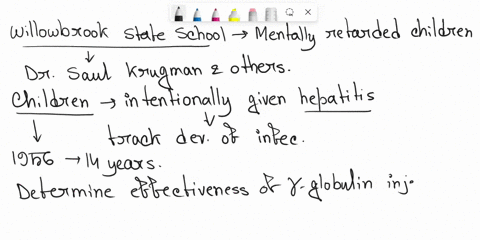 Willowbrook State School → Mentally retarded children
Dr. Saul Krugman & others.
Children → intentionally given hepatitis
track dev. of infec.
1956 → 14 years.
Determine effectiveness of γ-globulin inj.